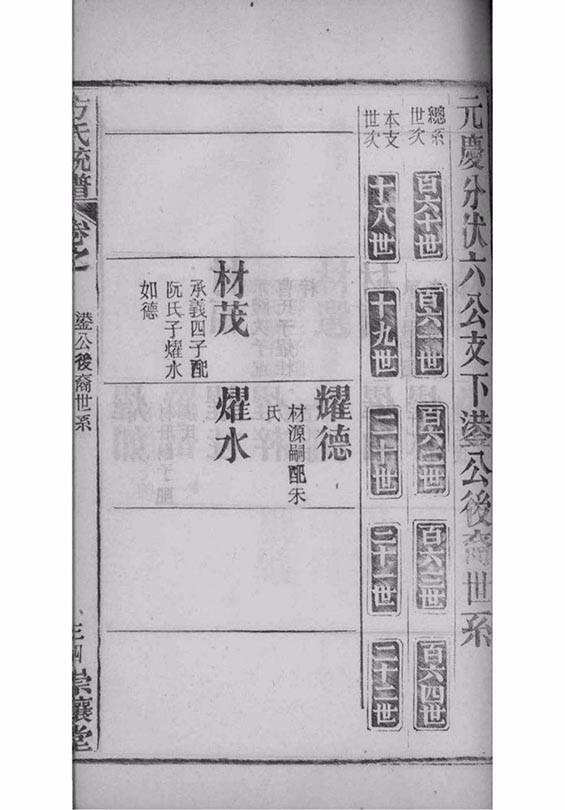 元慶分伏六公支下鎏公後裔世系
總系世次
百六十世
百六一世
百六二世
百六三世
百六四世
本支世次
十八世
十九世
二十世
二十一世
二十二世
耀德
材源嗣配朱
氏
材茂
承義四子配
阮氏子燿水
如德
燿水
方氏統譜
卷之
鎏公後裔世系
崇讓堂